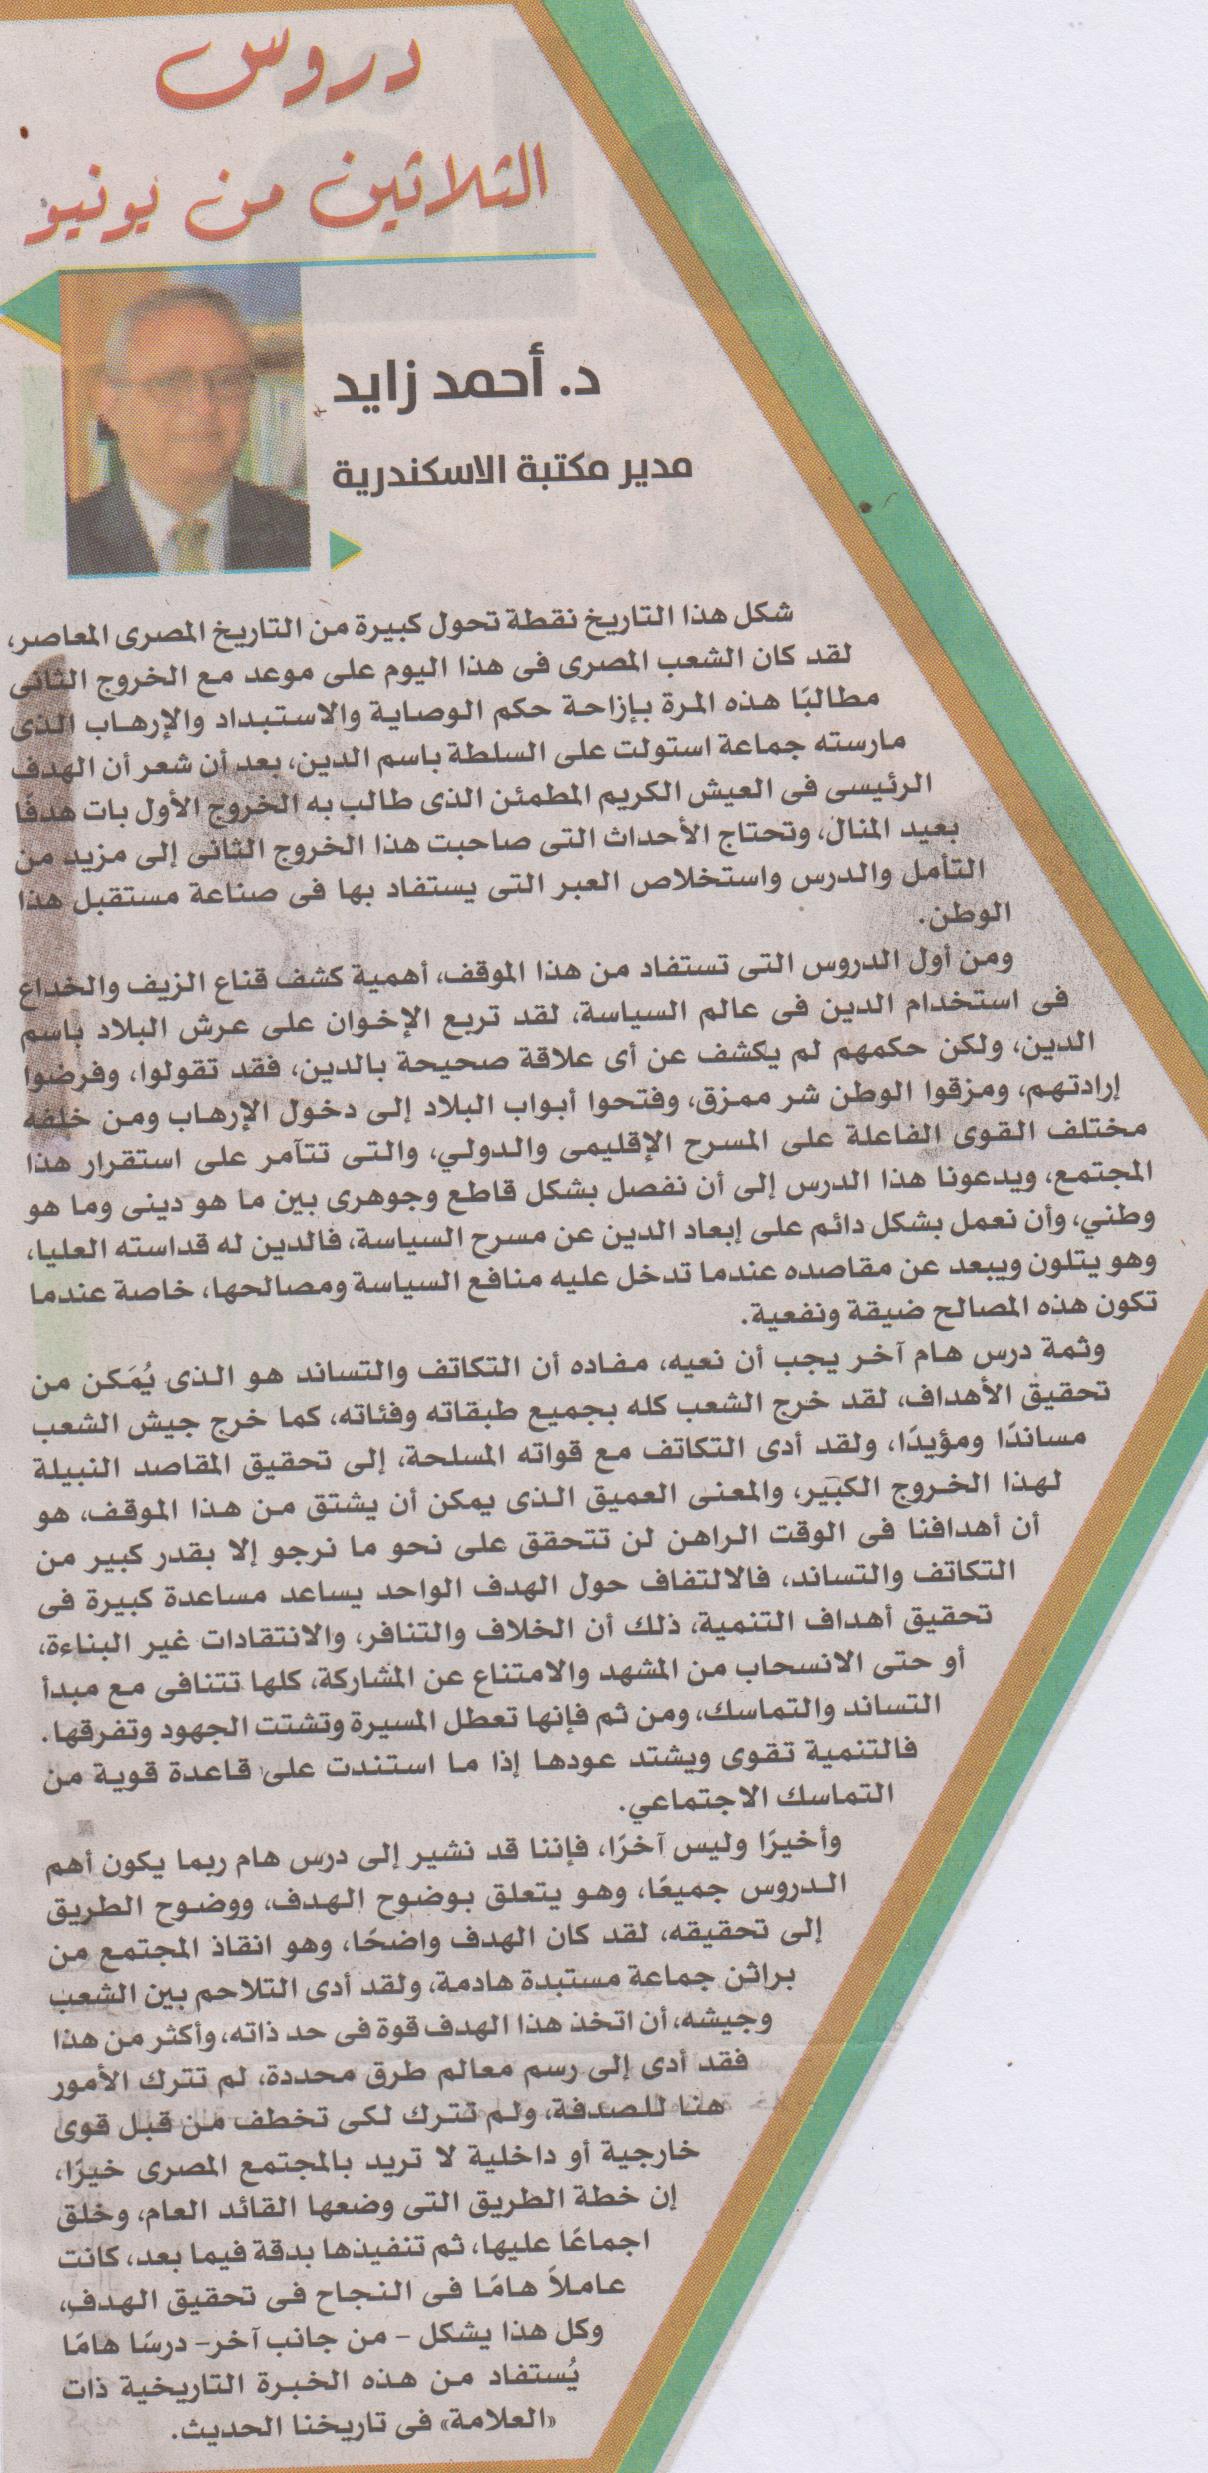 دروس
الثلاثين من يونيو
د. أحمد زايد
مدير مكتبة الاسكندرية
شكل هذا التاريخ نقطة تحول كبيرة من التاريخ المصرى المعاصر،
لقد كان الشعب المصرى فى هذا اليوم على موعد مع الخروج الثانى
مطالبًا هذه المرة بإزاحة حكم الوصاية والاستبداد والإرهاب الذى
مارسته جماعة استولت على السلطة باسم الدين، بعد أن شعر أن الهدف
الرئيسى فى العيش الكريم المطمئن الذى طالب به الخروج الأول بات هدفًا
بعيد المنال، وتحتاج الأحداث التى صاحبت هذا الخروج الثانى إلى مزيد من
التأمل والدرس واستخلاص العبر التى يستفاد بها فى صناعة مستقبل هذا
الوطن.
ومن أول الدروس التى تستفاد من هذا الموقف، أهمية كشف قناع الزيف والخداع
فى استخدام الدين فى عالم السياسة، لقد تربع الإخوان على عرش البلاد باسم
الدين، ولكن حكمهم لم يكشف عن أى علاقة صحيحة بالدين، فقد تقولوا، وفرضوا
إرادتهم، ومزقوا الوطن شر ممزق، وفتحوا أبواب البلاد إلى دخول الإرهاب ومن خلفه
مختلف القوى الفاعلة على المسرح الإقليمى والدولي، والتى تتآمر على استقرار هذا
المجتمع، ويدعونا هذا الدرس إلى أن نفصل بشكل قاطع وجوهرى بين ما هو دينى وما هو
وطني، وأن نعمل بشكل دائم على إبعاد الدين عن مسرح السياسة، فالدين له قداسته العليا،
وهو يتلون ويبعد عن مقاصده عندما تدخل عليه منافع السياسة ومصالحها، خاصة عندما
تكون هذه المصالح ضيقة ونفعية.
وثمة درس هام آخر يجب أن نعيه، مفاده أن التكاتف والتساند هو الذى يُمَكن من
تحقيق الأهداف، لقد خرج الشعب كله بجميع طبقاته وفئاته، كما خرج جيش الشعب
مساندًا ومؤيدًا، ولقد أدى التكاتف مع قواته المسلحة، إلى تحقيق المقاصد النبيلة
لهذا الخروج الكبير، والمعنى العميق الذى يمكن أن يشتق من هذا الموقف، هو
أن أهدافنا فى الوقت الراهن لن تتحقق على نحو ما نرجو إلا بقدر كبير من
التكاتف والتساند، فالالتفاف حول الهدف الواحد يساعد مساعدة كبيرة فى
تحقيق أهداف التنمية، ذلك أن الخلاف والتنافر، والانتقادات غير البناءة،
أو حتى الانسحاب من المشهد والامتناع عن المشاركة، كلها تتنافى مع مبدأ
التساند والتماسك، ومن ثم فإنها تعطل المسيرة وتشتت الجهود وتفرقها.
فالتنمية تقوى ويشتد عودها إذا ما استندت على قاعدة قوية من
التماسك الاجتماعي.
وأخيرًا وليس آخرًا، فإننا قد نشير إلى درس هام ربما يكون أهم
الدروس جميعًا، وهو يتعلق بوضوح الهدف، ووضوح الطريق
إلى تحقيقه، لقد كان الهدف واضحًا، وهو انقاذ المجتمع من
براثن جماعة مستبدة هادمة، ولقد أدى التلاحم بين الشعب
وجيشه، أن اتخذ هذا الهدف قوة فى حد ذاته، وأكثر من هذا
فقد أدى إلى رسم معالم طرق محددة، لم تترك الأمور
هنا للصدفة، ولم تترك لكى تخطف من قبل قوى
خارجية أو داخلية لا تريد بالمجتمع المصرى خيرًا،
إن خطة الطريق التى وضعها القائد العام، وخلق
اجماعًا عليها، ثم تنفيذها بدقة فيما بعد، كانت
عاملاً هامًا فى النجاح فى تحقيق الهدف،
وكل هذا يشكل - من جانب آخر- درسًا هامًا
يُستفاد من هذه الخبرة التاريخية ذات
«العلامة» فى تاريخنا الحديث.